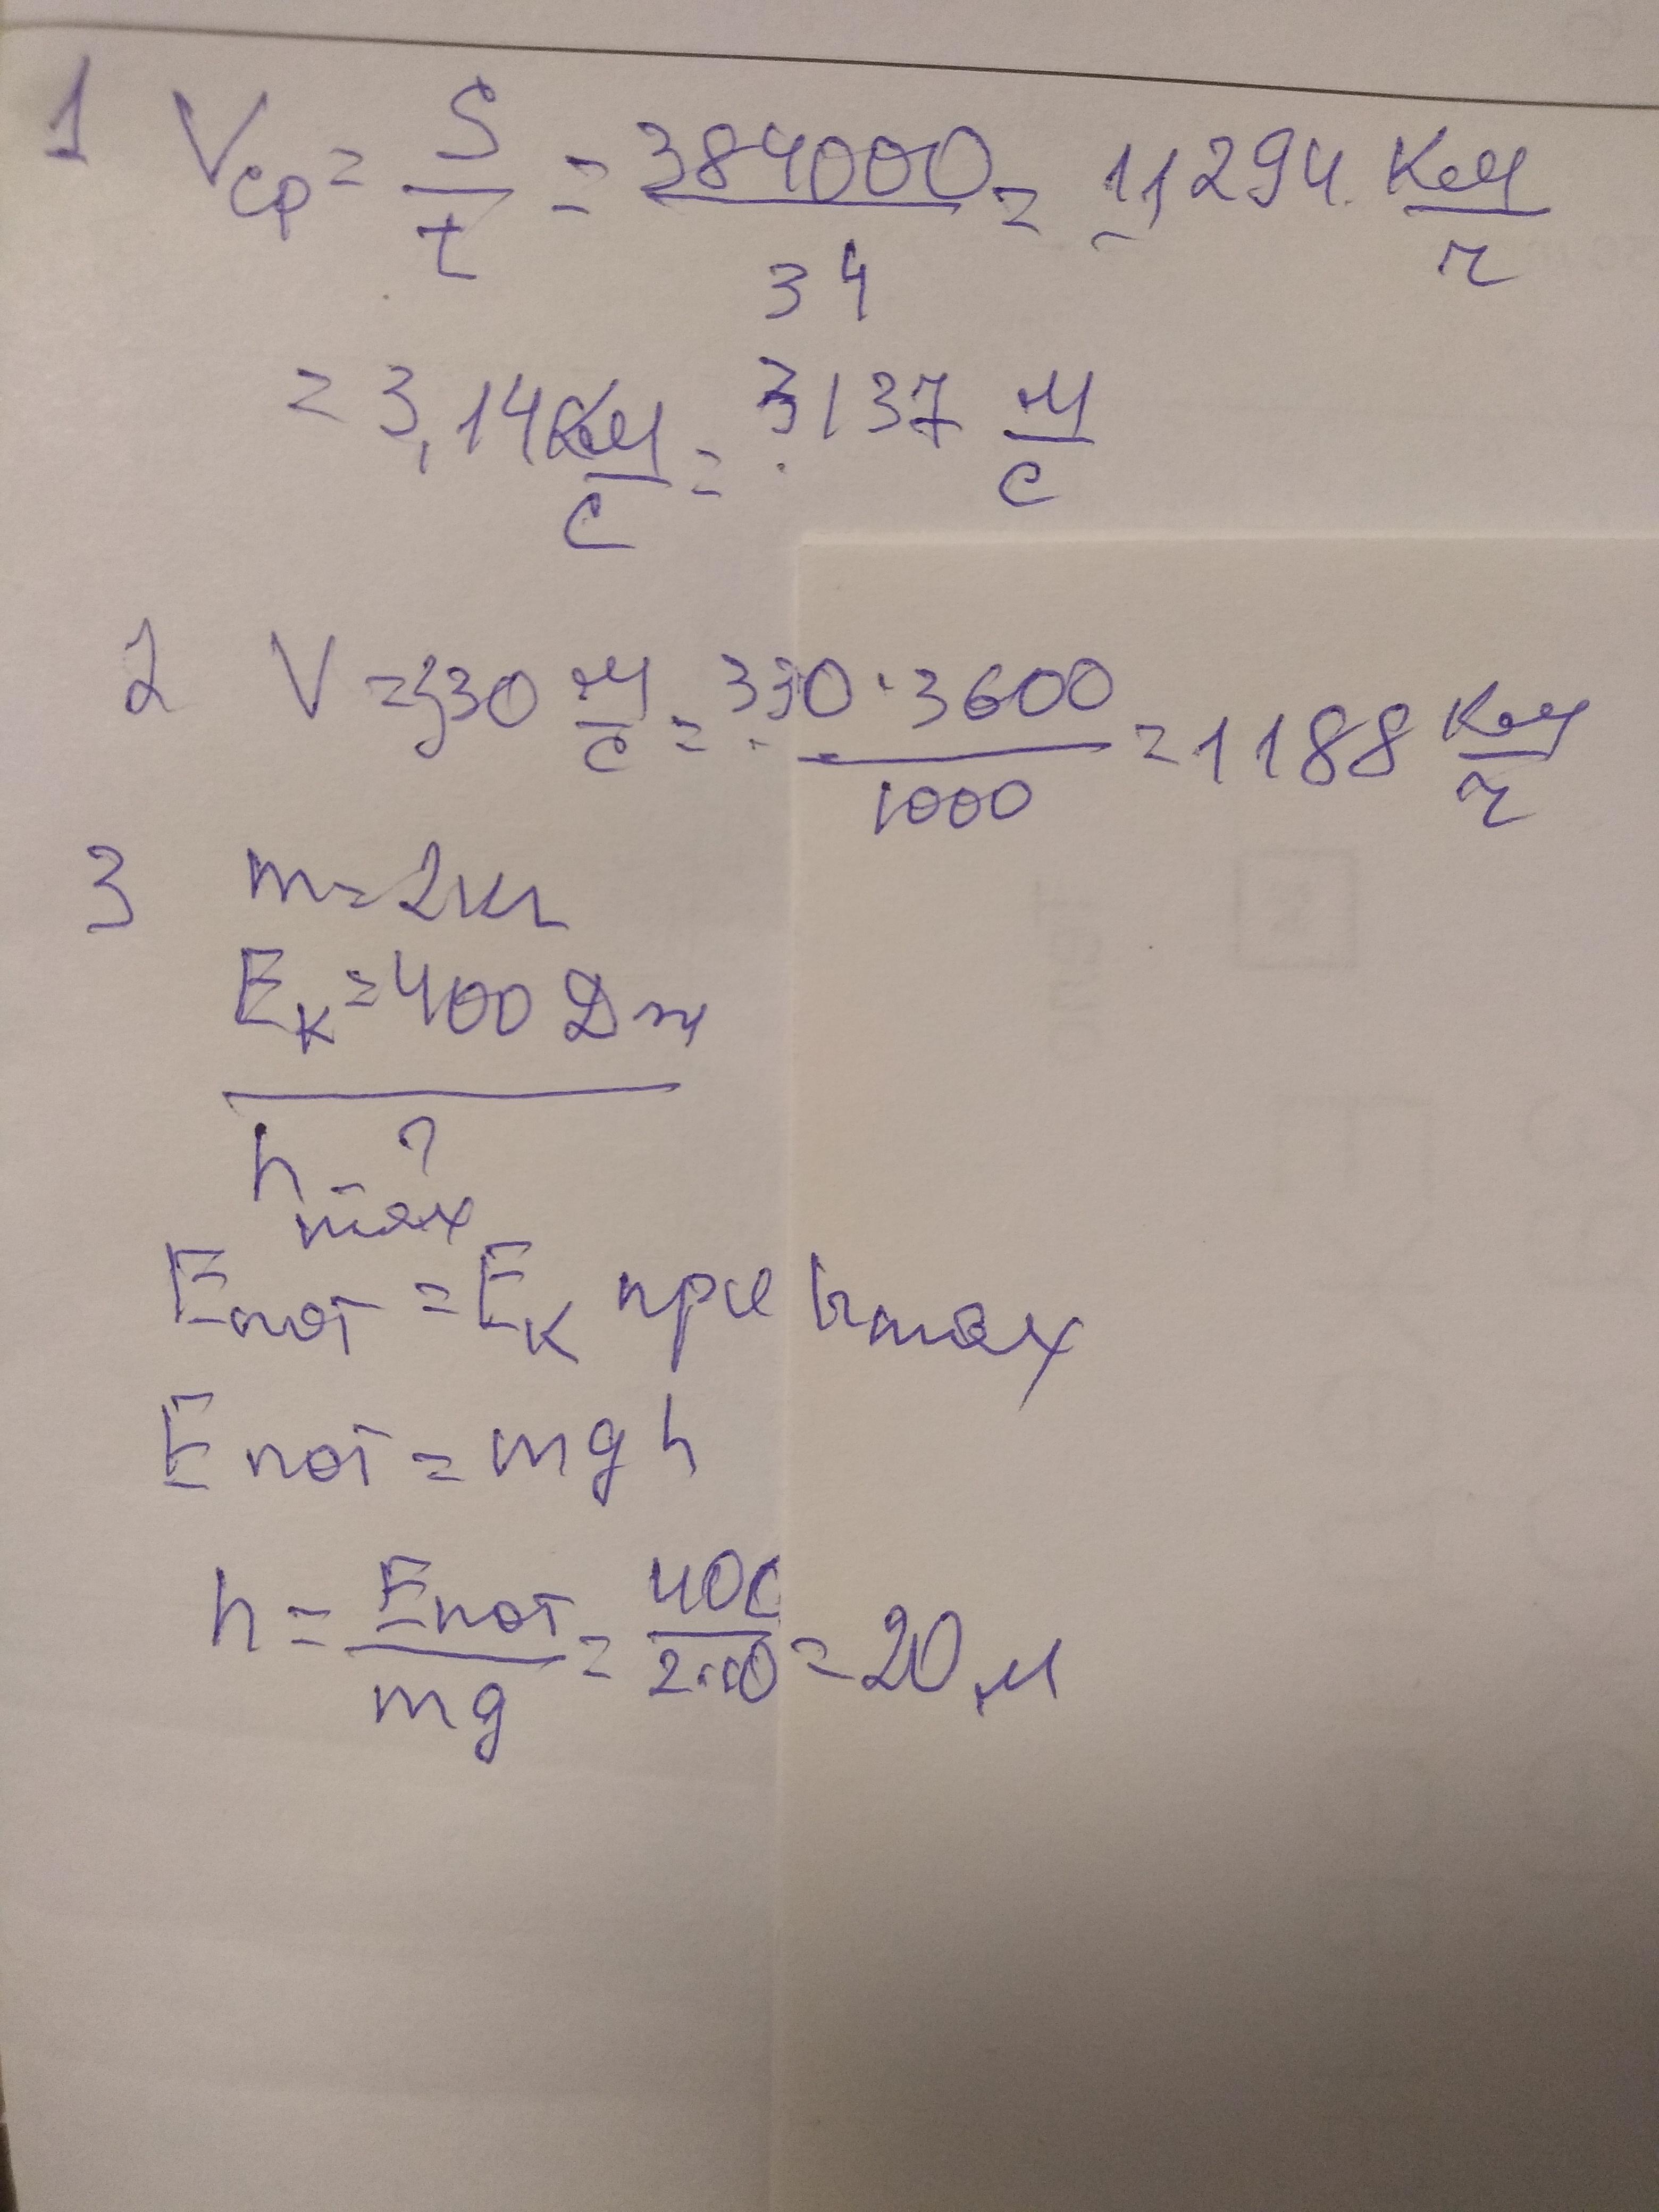 1 Vср = S/t = 384000/34 = 11294 км/ч
= 3,14 км/с = 3137 м/с
2 V = 330 м/с = 330·3600/1000 = 1188 км/ч
3 m = 2кг
Eк = 400 Дж
hmax - ?
Eпот = Eк при hmax
Eпот = mgh
h = Eпот/mg = 400/2·10 = 20 м